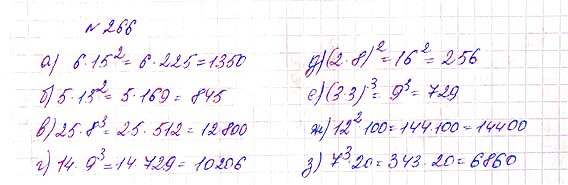 № 266
а) 6·15² = 6·225 = 1350
б) 5·13² = 5·169 = 845
в) 25·8³ = 25·512 = 12800
г) 14·9³ = 14 729 = 10206
д) (2·8)² = 16² = 256
е) (3 3)³ = 9³ = 729
ж) 12² 100 = 144·100 = 14400
з) 7³ 20 = 343·20 = 6860